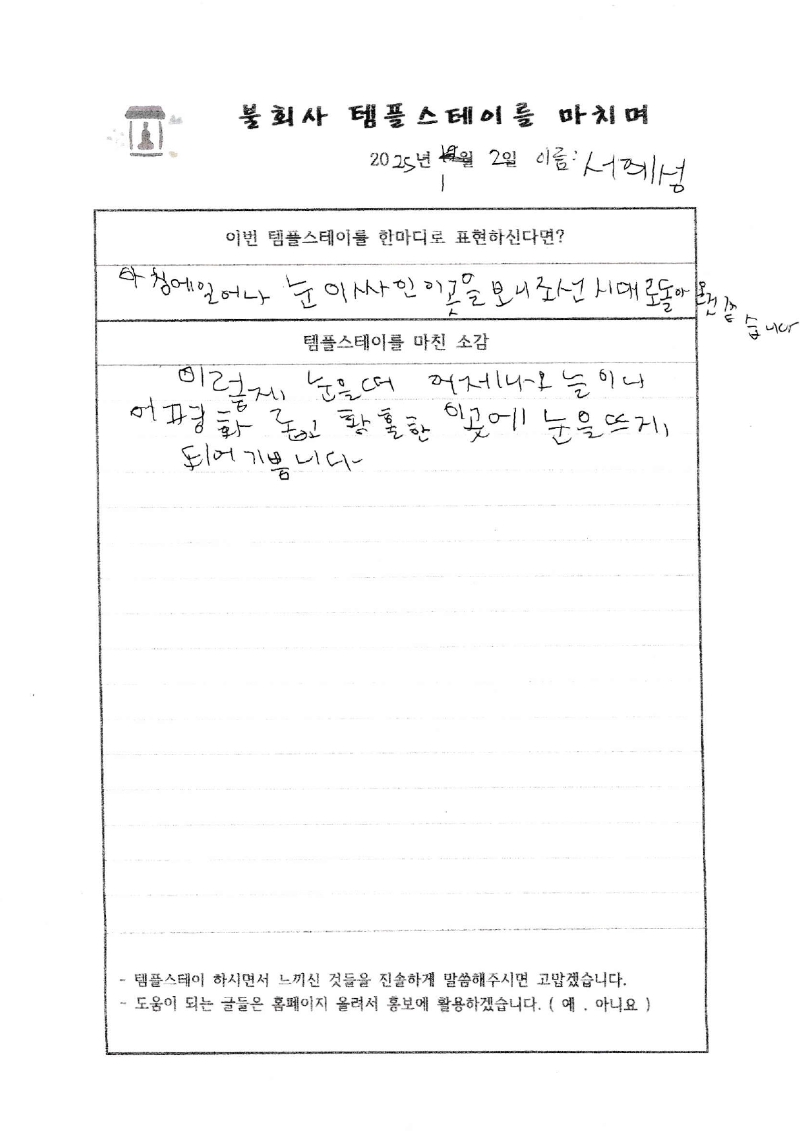 불회사 템플스테이를 마치며
2025년 1월 2일 이름: 서예성
이번 템플스테이를 한마디로 표현하신다면?
아침에일어나 눈이싸인이곳을보니조선시대로돌아온것같습니다
템플스테이를 마친 소감
이렇게 눈을떠 어제나오늘이나
어 평화롭고 황홀한 이곳에 눈을뜨게
되어기쁩니다
- 템플스테이 하시면서 느끼신 것들을 진솔하게 말씀해주시면 고맙겠습니다.
- 도움이 되는 글들은 홈페이지 올려서 홍보에 활용하겠습니다. ( 예 . 아니요 )